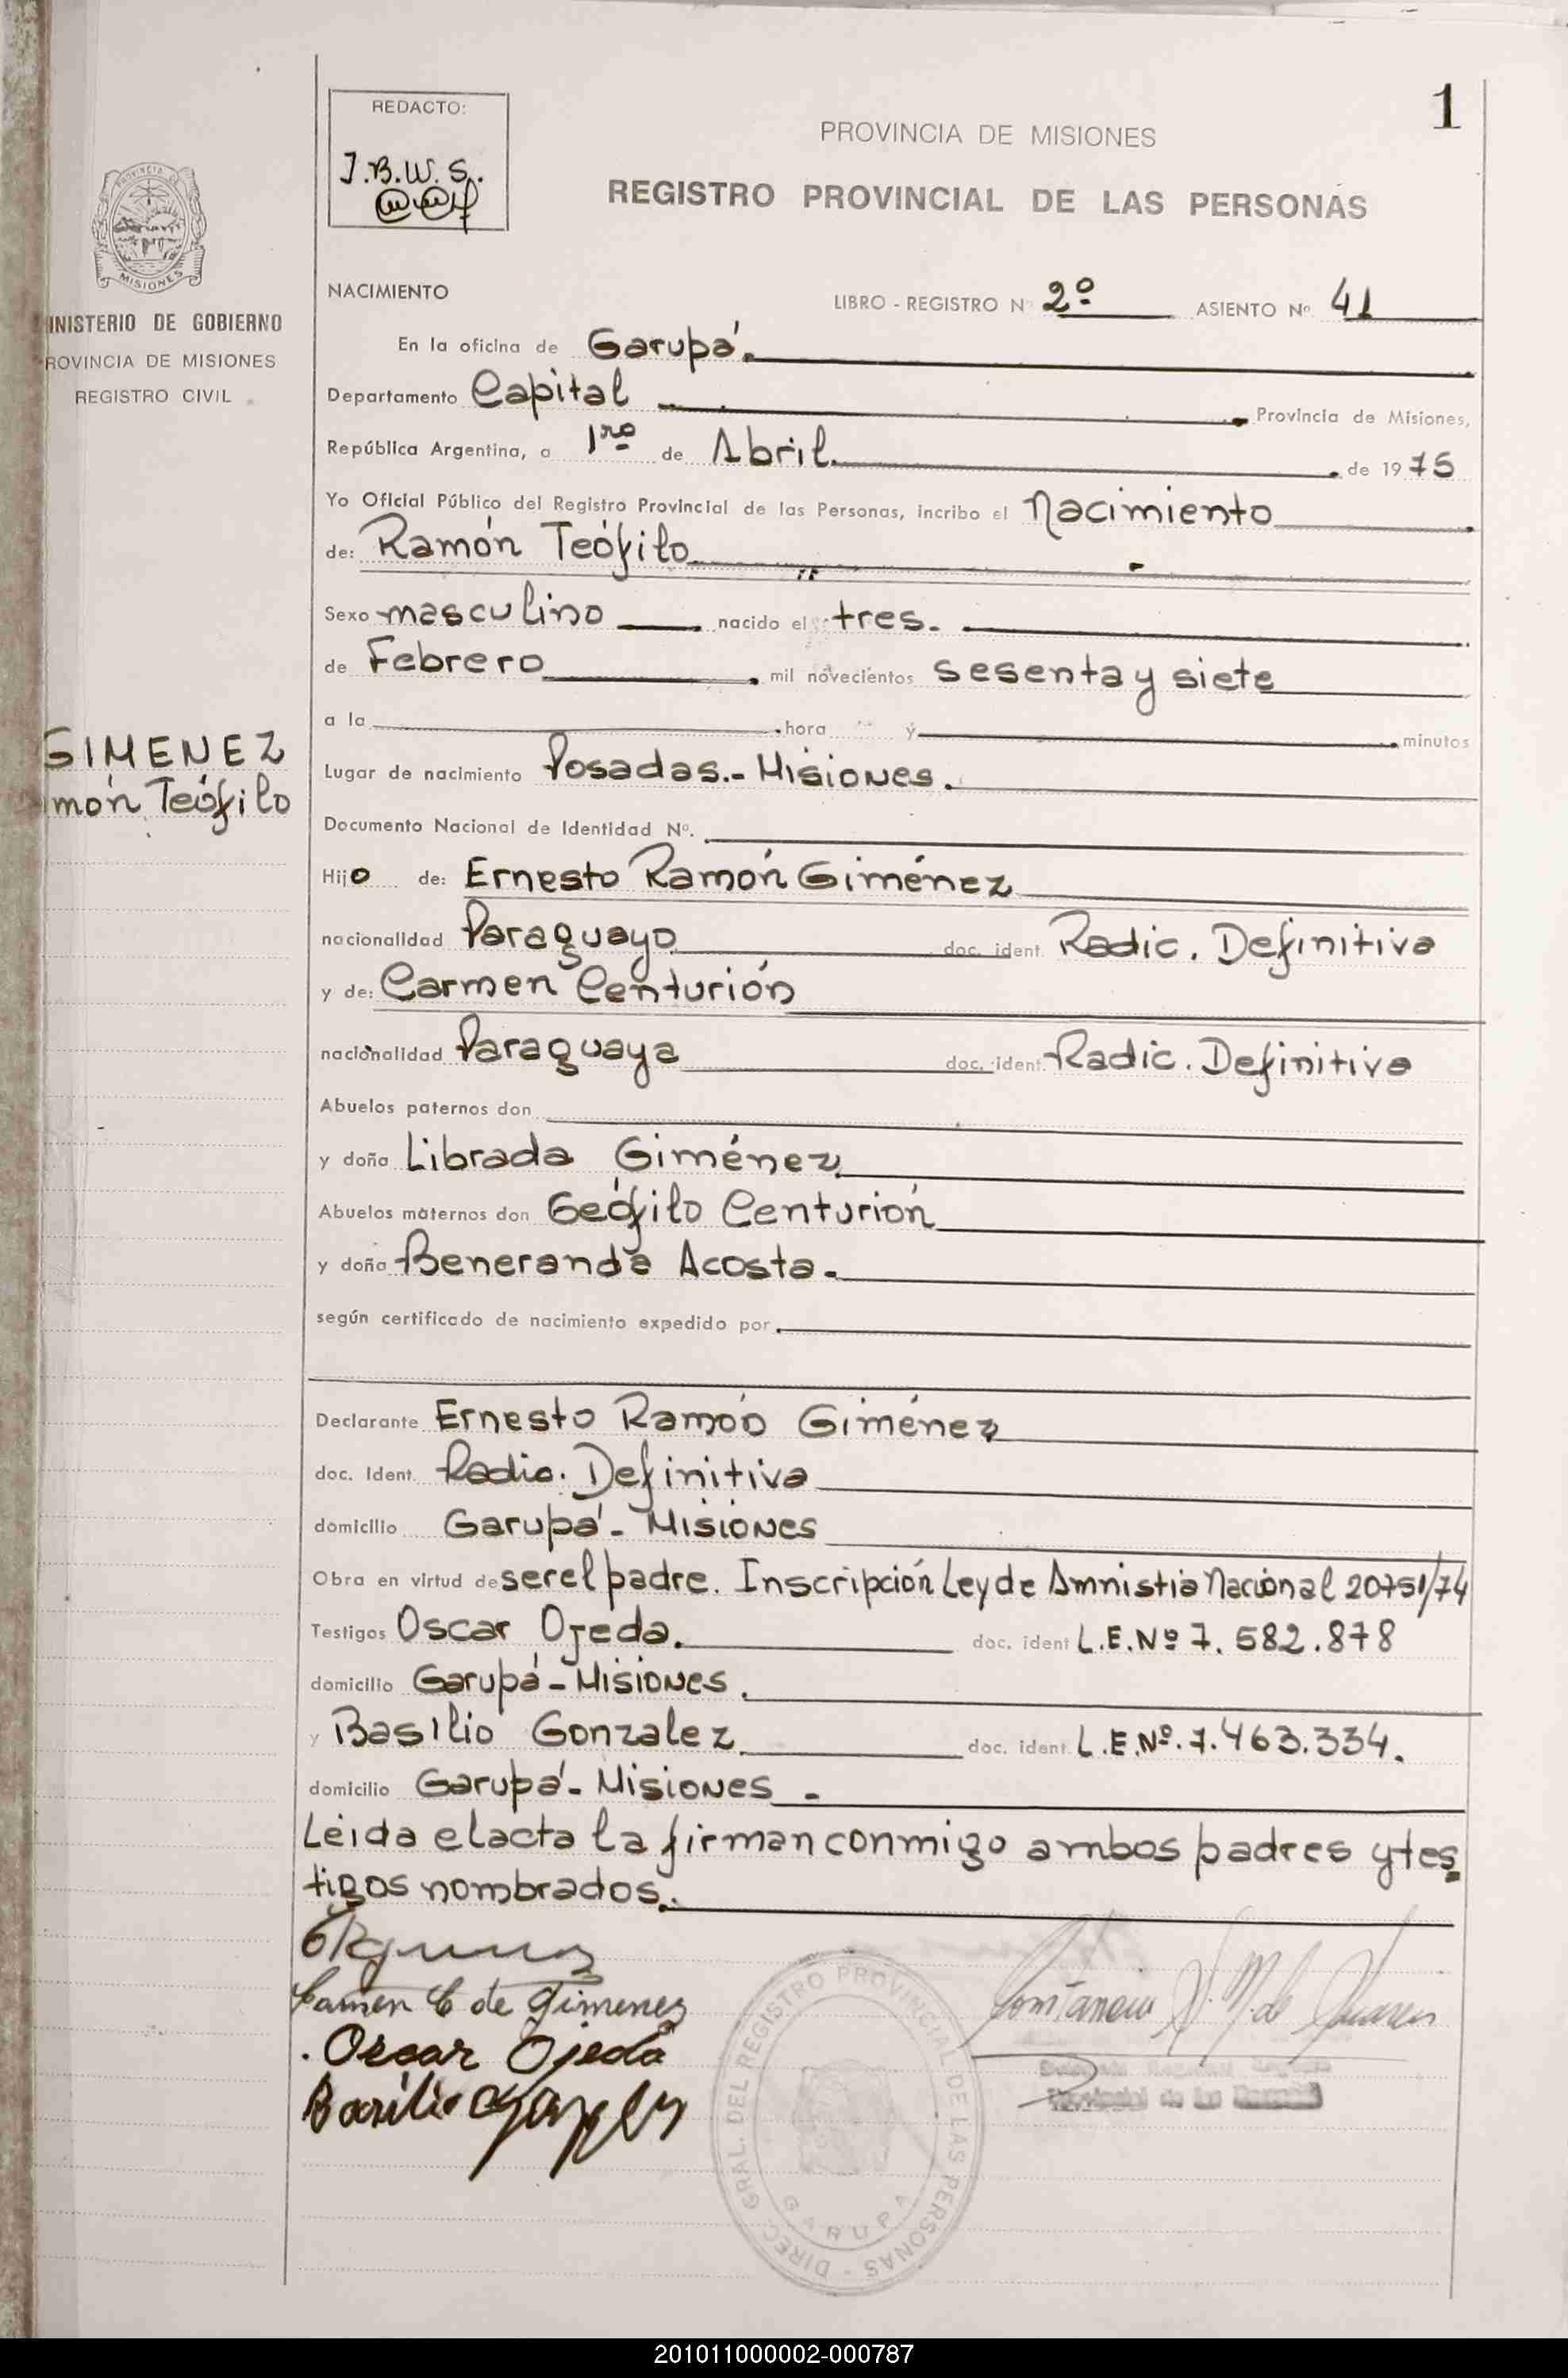 1
REDACTO:
J.B.W.S.
PROVINCIA DE MISIONES
REGISTRO PROVINCIAL DE LAS PERSONAS
PROVINCIA DE
MISIONES
INISTERIO DE GOBIERNO
ROVINCIA DE MISIONES
REGISTRO CIVIL
NACIMIENTO LIBRO - REGISTRO Nº 2º ASIENTO Nº 41
En la oficina de Garupá.
Departamento Capital Provincia de Misiones,
República Argentina, a 1ro de Abril. de 1975
Yo Oficial Público del Registro Provincial de las Personas, incribo el Nacimiento
de: Ramón Teófilo
Sexo masculino nacido el tres.
de Febrero mil novecientos sesenta y siete
a la hora y minutos
GIMENEZ
món Teófilo
Lugar de nacimiento Posadas.- Misiones.
Documento Nacional de Identidad Nº.
Hijo de: Ernesto Ramón Giménez
nacionalidad Paraguayo doc. ident. Radic. Definitiva
y de: Carmen Centurión
nacionalidad Paraguaya doc. ident. Radic. Definitiva
Abuelos paternos don
y doña Librada Giménez
Abuelos maternos don Geófilo Centurión
y doña Beneranda Acosta.
según certificado de nacimiento expedido por
Declarante Ernesto Ramón Giménez
doc. Ident. Radic. Definitiva
domicilio Garupá - Misiones
Obra en virtud de ser el padre. Inscripción Ley de Amnistia Nacional 20751/74
Testigos Oscar Ojeda. doc. ident L.E. Nº 7.582.878
domicilio Garupá - Misiones.
y Basilio Gonzalez doc. ident. L.E. Nº. 7.463.334.
domicilio Garupá - Misiones -
Leida el acta la firman conmigo ambos padres y tes
tigos nombrados.
Carmen C de Gimenez
Oscar Ojeda
Basilio
DIREC. GRAL. DEL REGISTRO PROVINCIAL DE LAS PERSONAS -
GARUPA
Provincial de las
201011000002-000787